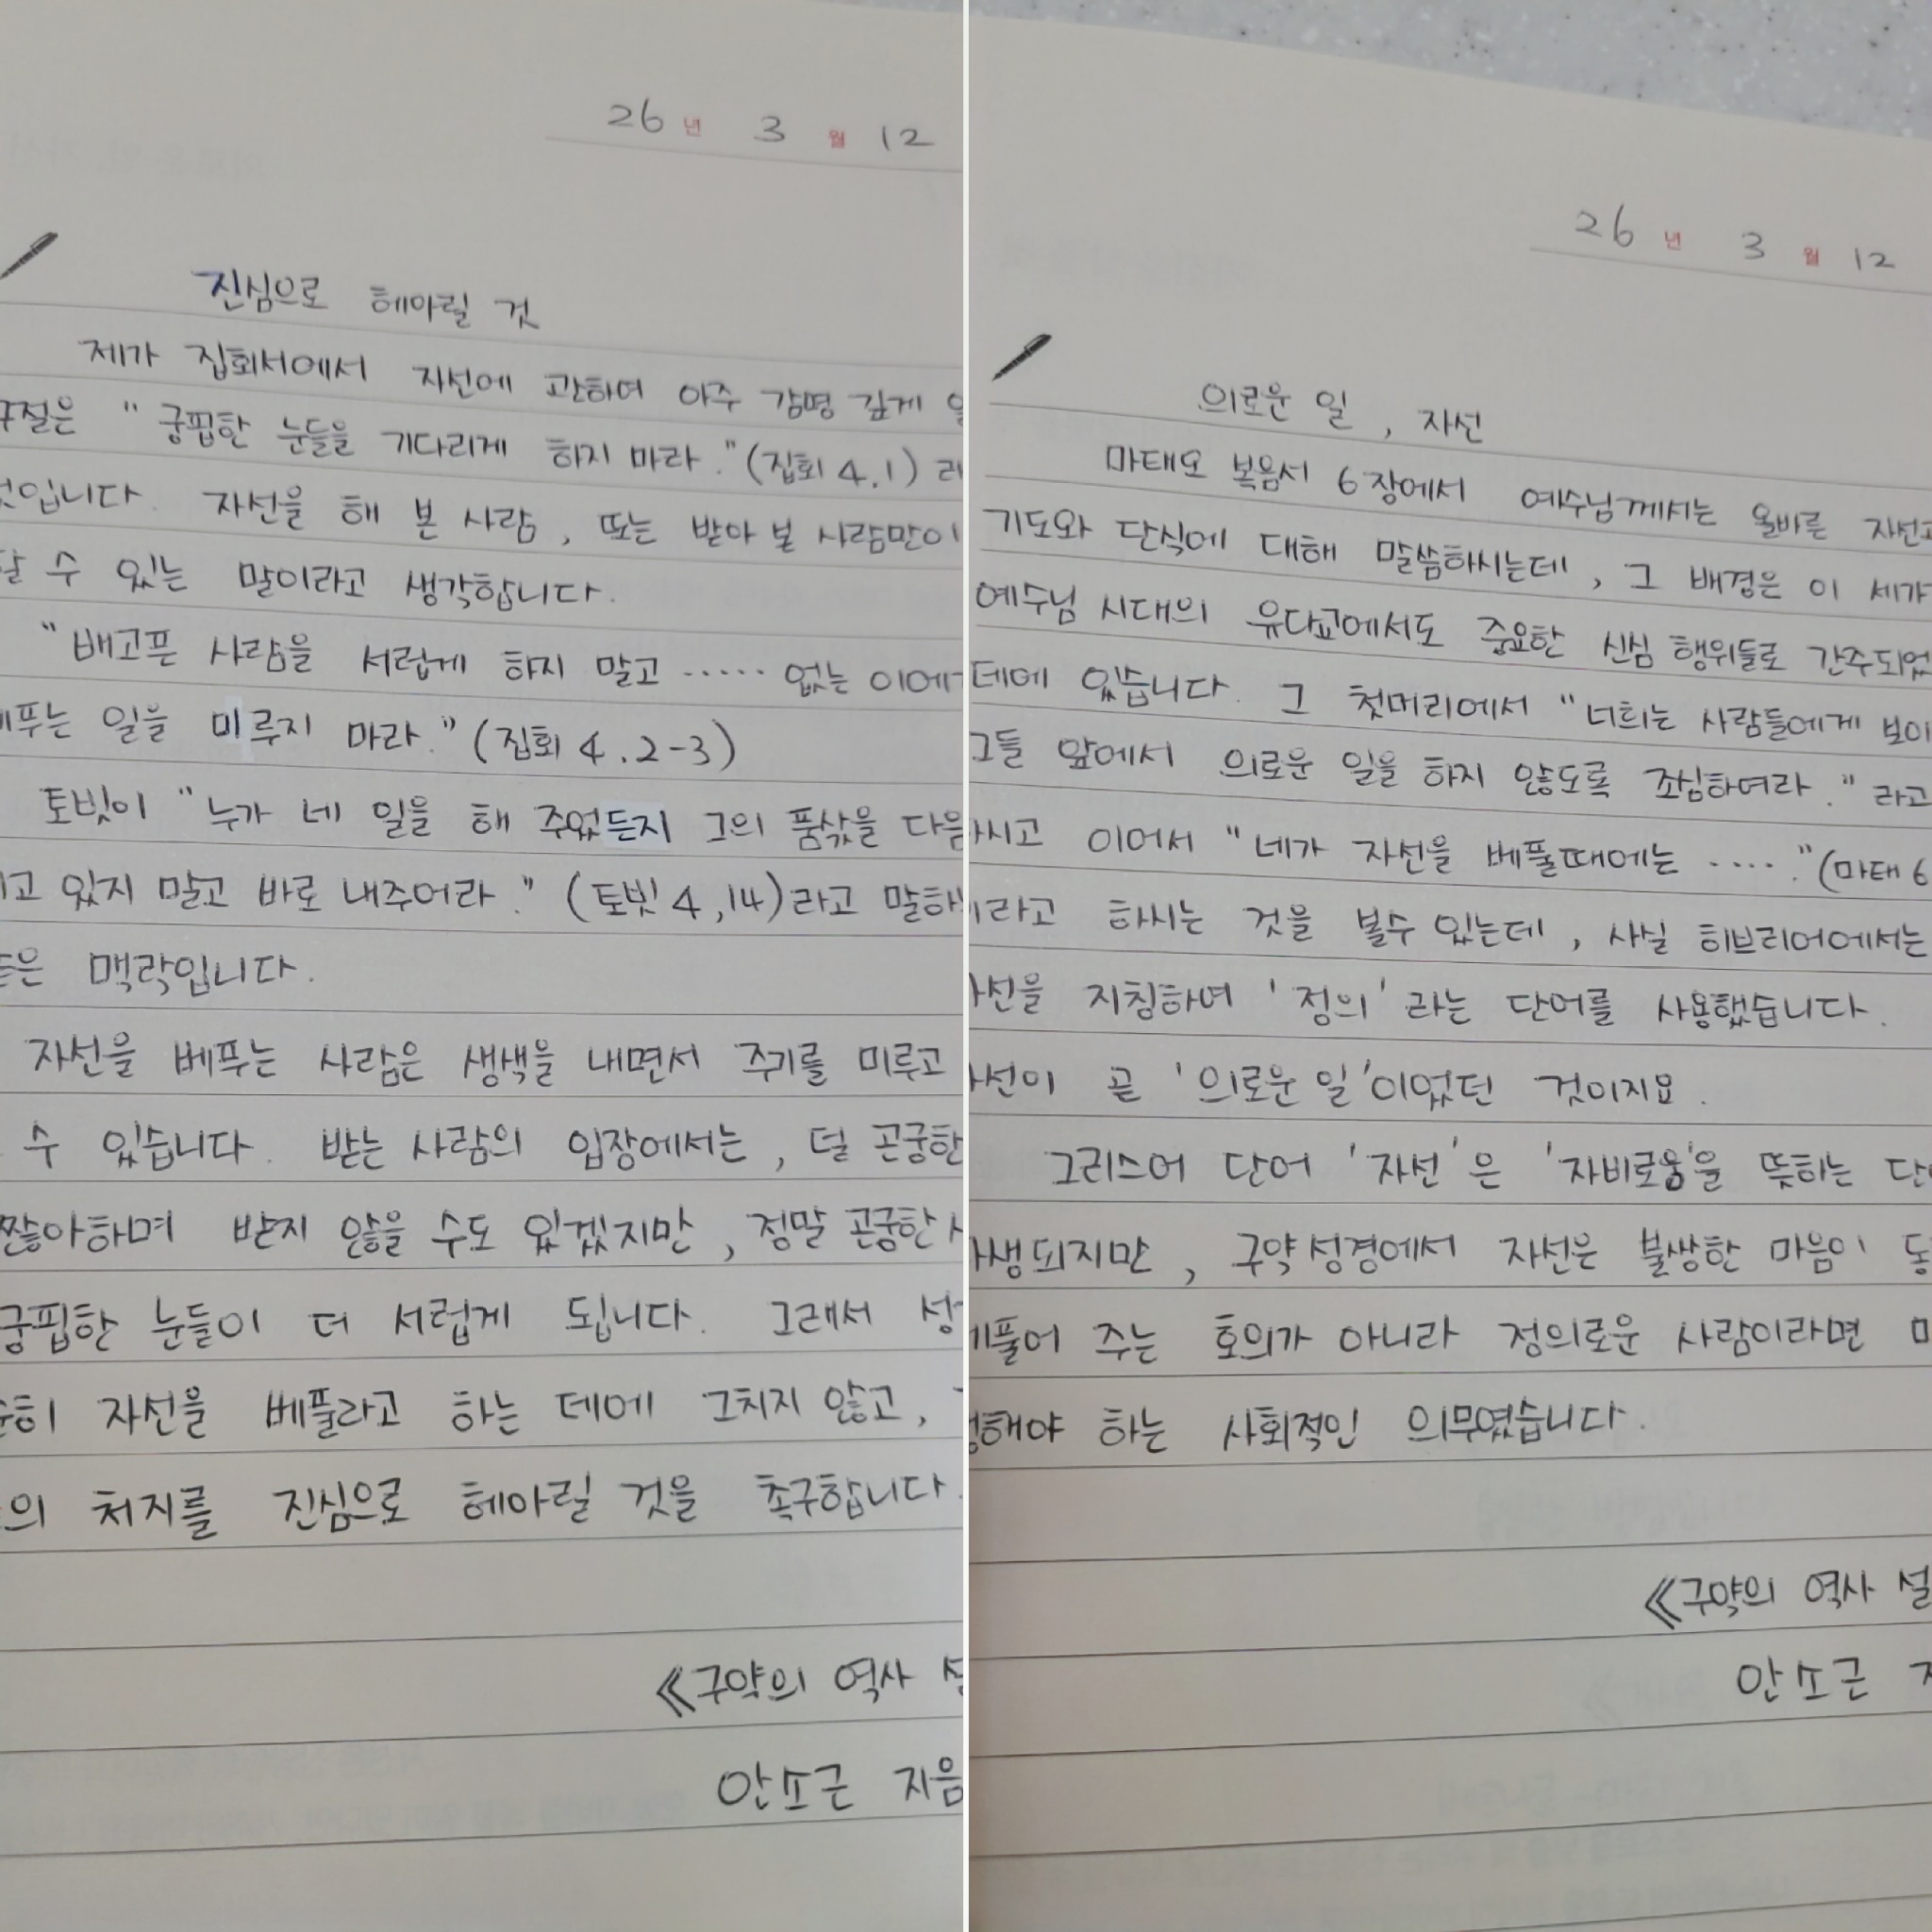 26년 3월 12
진심으로 헤아릴 것
제가 집회서에서 자선에 관하여 아주 감명 깊게
구절은 "궁핍한 눈들을 기다리게 하지 마라."(집회 4,1)
것입니다. 자선을 해 본 사람, 또는 받아 본 사람만이
수 있는 말이라고 생각합니다.
"배고픈 사람을 서럽게 하지 말고 ····· 없는 이에
일을 미루지 마라."(집회 4.2-3)
토빗이 "누가 네 일을 해 주었든지 그의 품삯을
있지 말고 바로 내주어라."(토빗 4,14)라고
맥락입니다.
자선을 베푸는 사람은 생색을 내면서 주기를 미루고
수 있습니다. 받는 사람의 입장에서는, 덜 곤궁한
받지 않을 수도 있겠지만, 정말 곤궁한
궁핍한 눈들이 더 서럽게 됩니다. 그래서
자선을 베풀라고 하는 데에 그치지 않고,
의 처지를 진심으로 헤아릴 것을 촉구합니다.
≪구약의 역사
안소근 지음
26년 3월 12
의로운 일, 자선
마태오 복음서 6장에서 예수님께서는 올바른
기도와 단식에 대해 말씀하시는데, 그 배경은 이
예수님 시대의 유다교에서도 중요한 신심 행위들로 간주되었
데에 있습니다. 그 첫머리에서 "너희는 사람들에게 보이
그들 앞에서 의로운 일을 하지 않도록 조심하여라." 라고
이어서 "네가 자선을 베풀때에는 ····."(마태 6
하시는 것을 볼수 있는데, 사실 히브리어에서는
지칭하여 '정의'라는 단어를 사용했습니다.
곧 '의로운 일'이었던 것이지요.
그리스어 단어 '자선'은 '자비로움'을 뜻하는
구약성경에서 자선은 불쌍한 마음이
주는 호의가 아니라 정의로운 사람이라면
하는 사회적인 의무였습니다.
≪구약의 역사
안소근